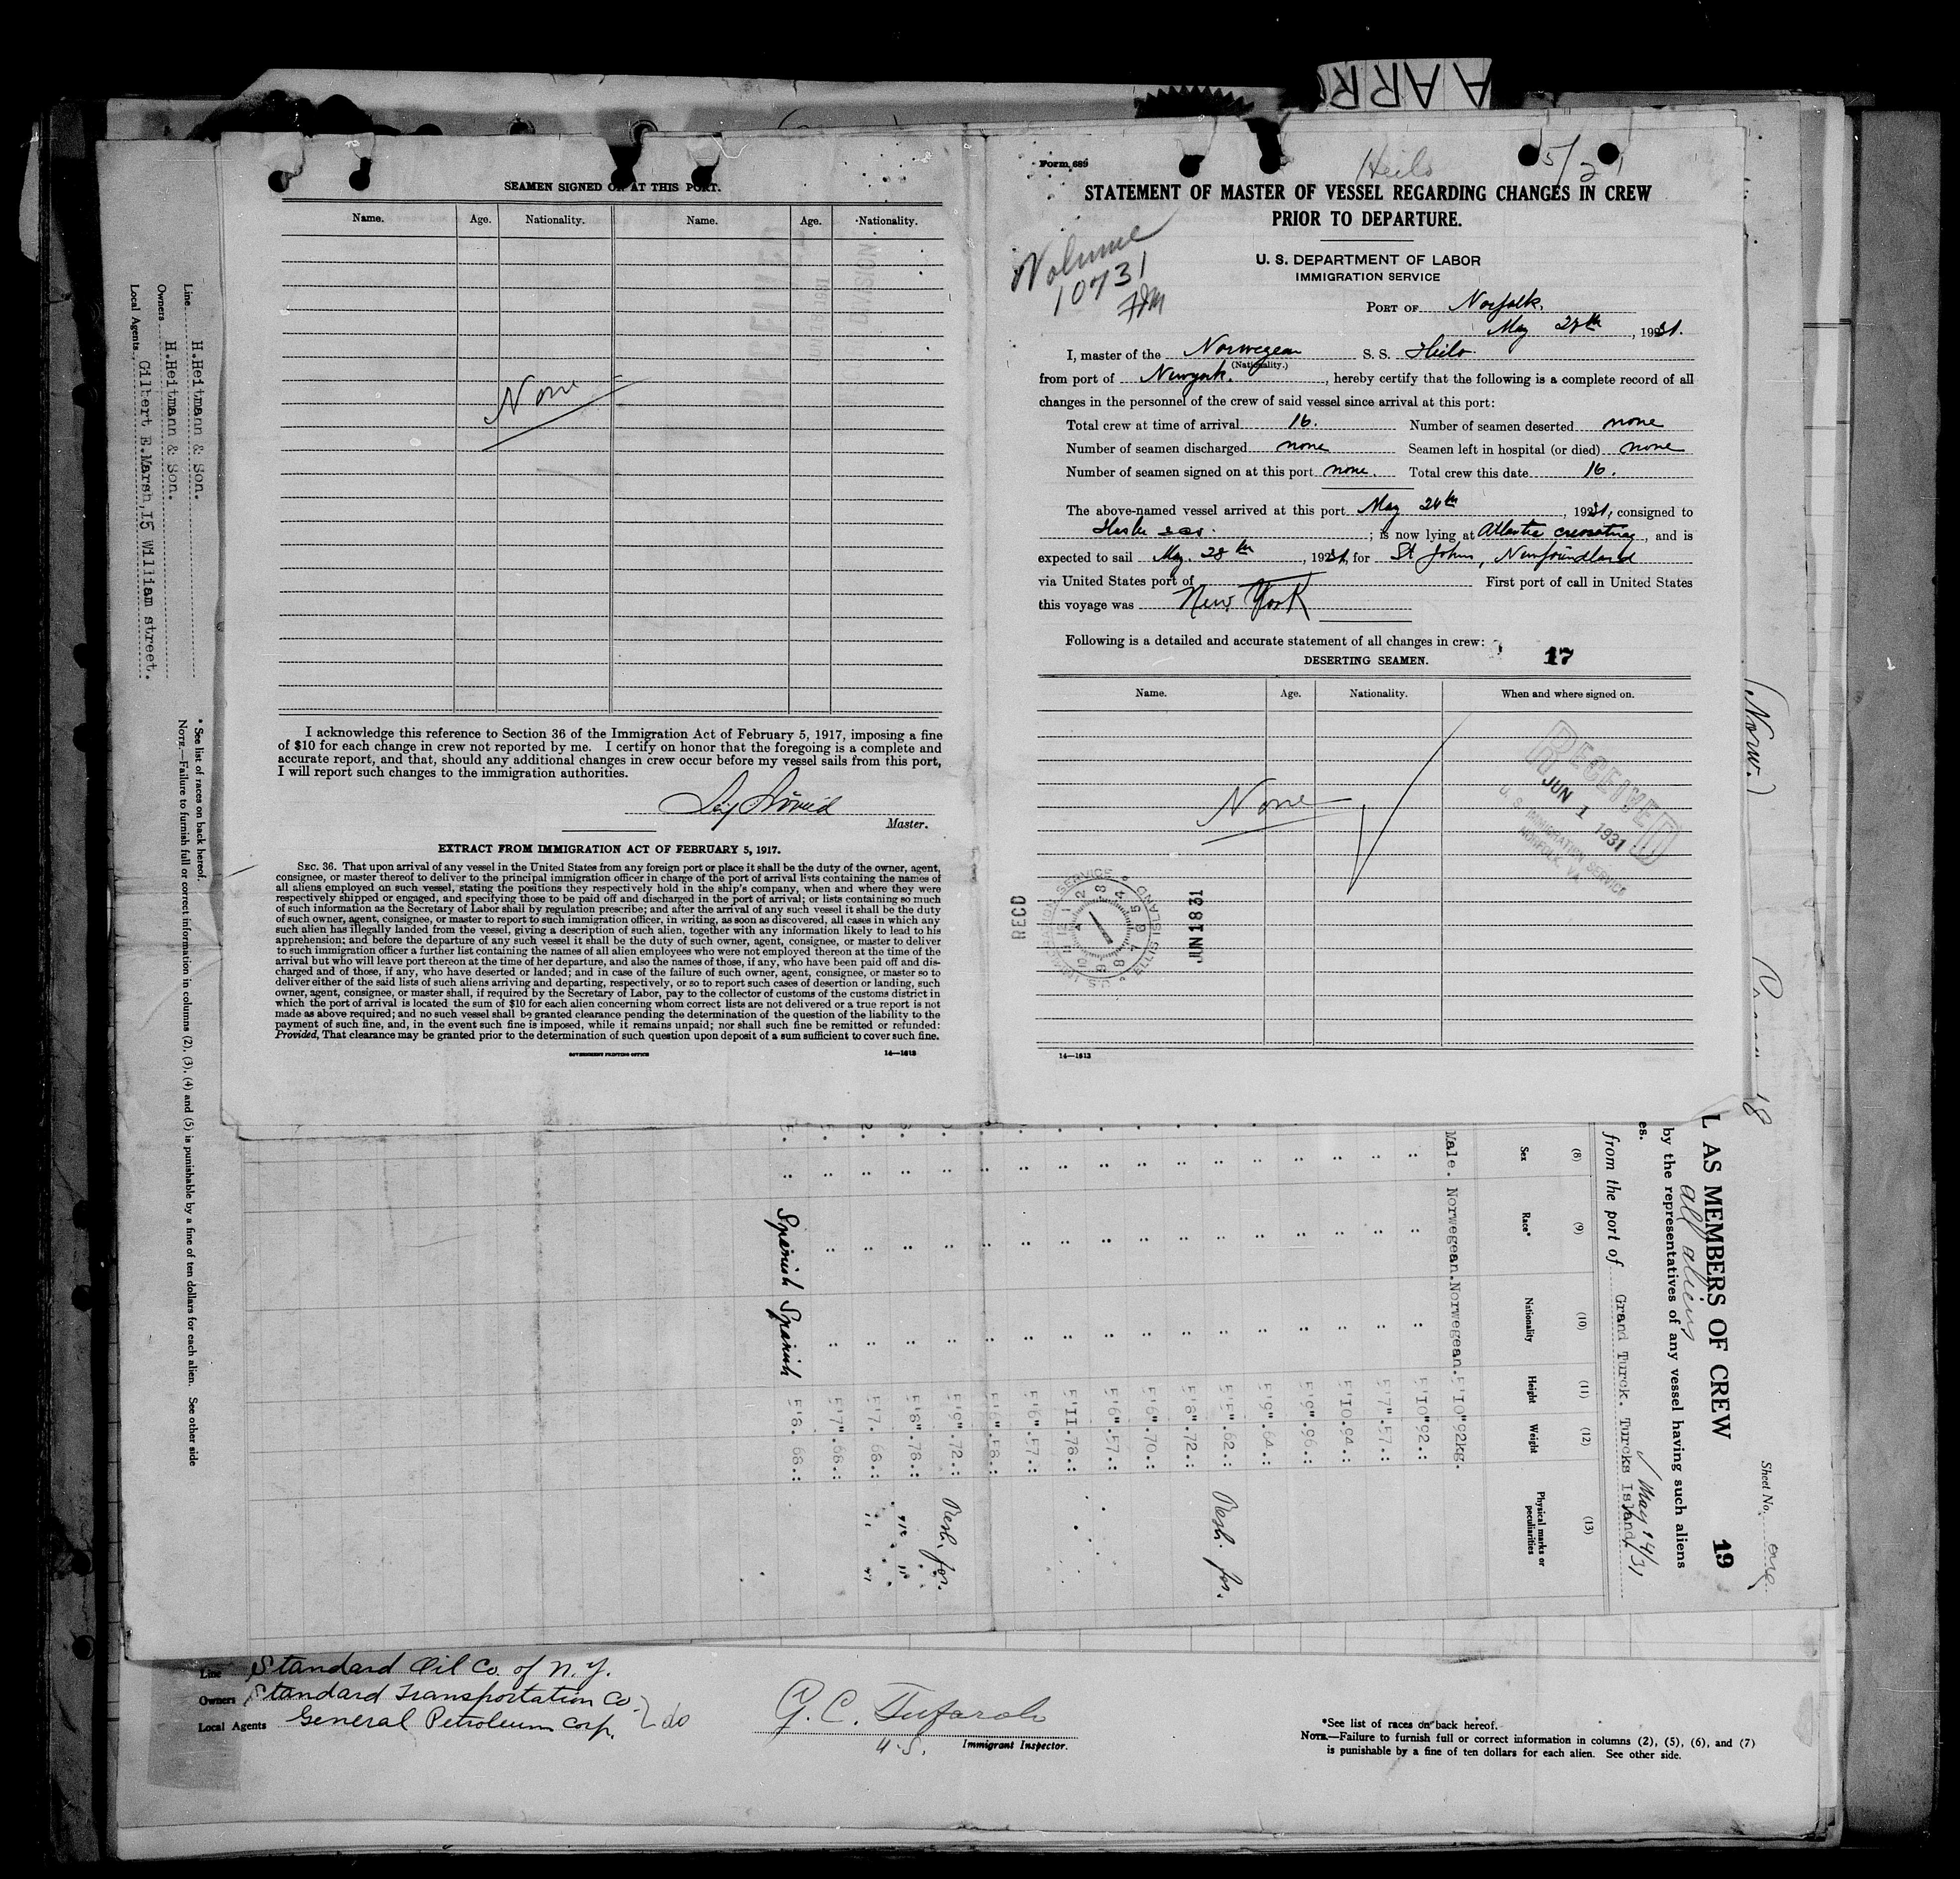 AARR
SEAMEN SIGNED ON AT THIS PORT.
Name. Age. Nationality. Name. Age. Nationality.
None
I acknowledge this reference to Section 36 of the Immigration Act of February 5, 1917, imposing a fine
of $10 for each change in crew not reported by me. I certify on honor that the foregoing is a complete and
accurate report, and that, should any additional changes in crew occur before my vessel sails from this port,
I will report such changes to the immigration authorities.
Master.
EXTRACT FROM IMMIGRATION ACT OF FEBRUARY 5, 1917.
SEC. 36. That upon arrival of any vessel in the United States from any foreign port or place it shall be the duty of the owner, agent,
consignee, or master thereof to deliver to the principal immigration officer in charge of the port of arrival lists containing the names of
all aliens employed on such vessel, stating the positions they respectively hold in the ship's company, when and where they were
respectively shipped or engaged, and specifying those to be paid off and discharged in the port of arrival; or lists containing so much
of such information as the Secretary of Labor shall by regulation prescribe; and after the arrival of any such vessel it shall be the duty
of such owner, agent, consignee, or master to report to such immigration officer, in writing, as soon as discovered, all cases in which any
such alien has illegally landed from the vessel, giving a description of such alien, together with any information likely to lead to his
apprehension; and before the departure of any such vessel it shall be the duty of such owner, agent, consignee, or master to deliver
to such immigration officer a further list containing the names of all alien employees who were not employed thereon at the time of the
arrival but who will leave port thereon at the time of her departure, and also the names of those, if any, who have been paid off and dis-
charged and of those, if any, who have deserted or landed; and in case of the failure of such owner, agent, consignee, or master so to
deliver either of the said lists of such aliens arriving and departing, respectively, or so to report such cases of desertion or landing, such
owner, agent, consignee, or master shall, if required by the Secretary of Labor, pay to the collector of customs of the customs district in
which the port of arrival is located the sum of $10 for each alien concerning whom correct lists are not delivered or a true report is not
made as above required; and no such vessel shall be granted clearance pending the determination of the question of the liability to the
payment of such fine, and, in the event such fine is imposed, while it remains unpaid; nor shall such fine be remitted or refunded:
Provided, That clearance may be granted prior to the determination of such question upon deposit of a sum sufficient to cover such fine.
GOVERNMENT PRINTING OFFICE 14—1613
Form 689
Heilo 5/2
STATEMENT OF MASTER OF VESSEL REGARDING CHANGES IN CREW
PRIOR TO DEPARTURE.
Volume
10731
U. S. DEPARTMENT OF LABOR
IMMIGRATION SERVICE
PORT OF Norfolk.
May 28th, 1931.
I, master of the Norwegean S. S. Heilo
(Nationality.)
from port of Newyork., hereby certify that the following is a complete record of all
changes in the personnel of the crew of said vessel since arrival at this port:
Total crew at time of arrival 16. Number of seamen deserted none
Number of seamen discharged none Seamen left in hospital (or died) none
Number of seamen signed on at this port none. Total crew this date 16.
The above-named vessel arrived at this port May 24th, 1931, consigned to
; is now lying at Atlantic, and is
expected to sail May. 28th, 1931, for St Johns, Newfoundland
via United States port of First port of call in United States
this voyage was New York
Following is a detailed and accurate statement of all changes in crew:
17
DESERTING SEAMEN.
Name. Age. Nationality. When and where signed on.
None
RECEIVED
JUN 1 1931
U. S. IMMIGRATION SERVICE
NORFOLK, VA.
RECD
U.S. IMMIGRATION SERVICE ELLIS ISLAND
JUN 18 31
14—1613
Line H.Heitmann & Son.
Owners H.Heitmann & Son.
Local Agents Gilbert E.Marsh,I5 William street.
* See list of races on back hereof.
NOTE.—Failure to furnish full or correct information in columns (2), (3), (4) and (5) is punishable by a fine of ten dollars for each alien. See other side
(Norw.)
18
L AS MEMBERS OF CREW
19
Sheet No. one
all aliens
by the representatives of any vessel having such aliens
es.
from the port of Grand Turck. Turcks Island
May 14/31
(8) (9) (10) (11) (12) (13)
Sex Race* Nationality Height Weight Physical marks or peculiarities
Male. Norwegean. Norwegean. 5'I0" 92kg.
" " " 5'I0" 92.:
" " " 5'7". 57.:
" " " 5'I0. 94.:
" " " 5'9". 96.:
" " " 5'9". 64.:
" " " 5'5". 62.:
" " " 5'8". 72.:
" " " 5'6". 70.:
" " " 5'6". 57.:
" " " 5'II. 78.:
" " " 5'6". 57.:
" " " 5'6". 58.:
" " " 5'9". 72.:
" " " 5'8". 78.:
" " " 5'7. 68.:
" " " 5'7". 68.:
" Spanish Spanish 5'8. 68.:
Line Standard Oil Co. of N. Y.
Owners Standard Transportation Co
Local Agents General Petroleum Corp. do
U.S. Immigrant Inspector.
*See list of races on back hereof.
NOTE.—Failure to furnish full or correct information in columns (2), (5), (6), and (7)
is punishable by a fine of ten dollars for each alien. See other side.